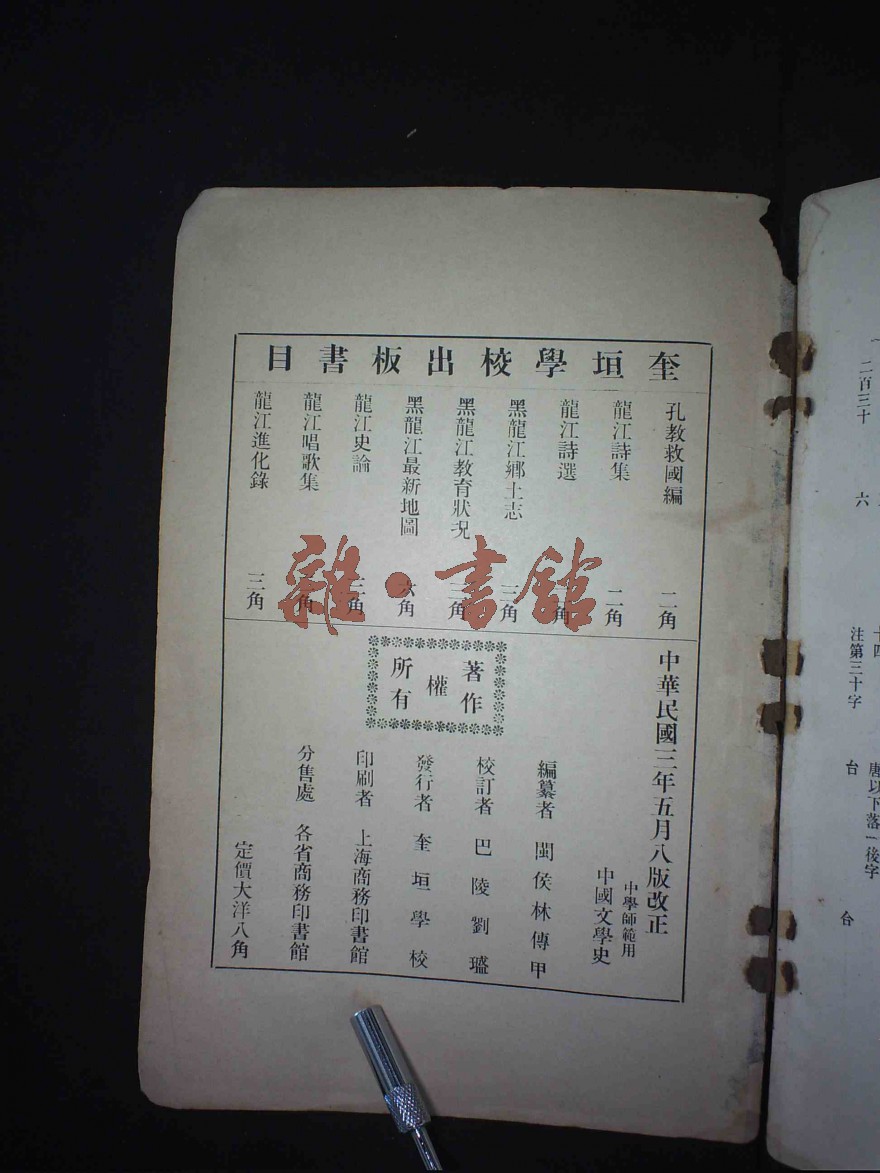 奎垣學校出板書目
孔教救國編 二角
龍江詩集 二角
龍江詩選 角
黑龍江鄉土志 三角
黑龍江教育狀況 二角
黑龍江最新地圖 六角
龍江史論 二角
龍江唱歌集 角
龍江進化錄 三角
雜·書館
中華民國三年五月八版改正
中學師範用
中國文學史
著作
權
所有
編纂者 閩侯林傳甲
校訂者 巴陵劉璱
發行者 奎垣學校
印刷者 上海商務印書館
分售處 各省商務印書館
定價大洋八角
二百三十
六
十四
注第三十字
唐以下落一後字
台
台